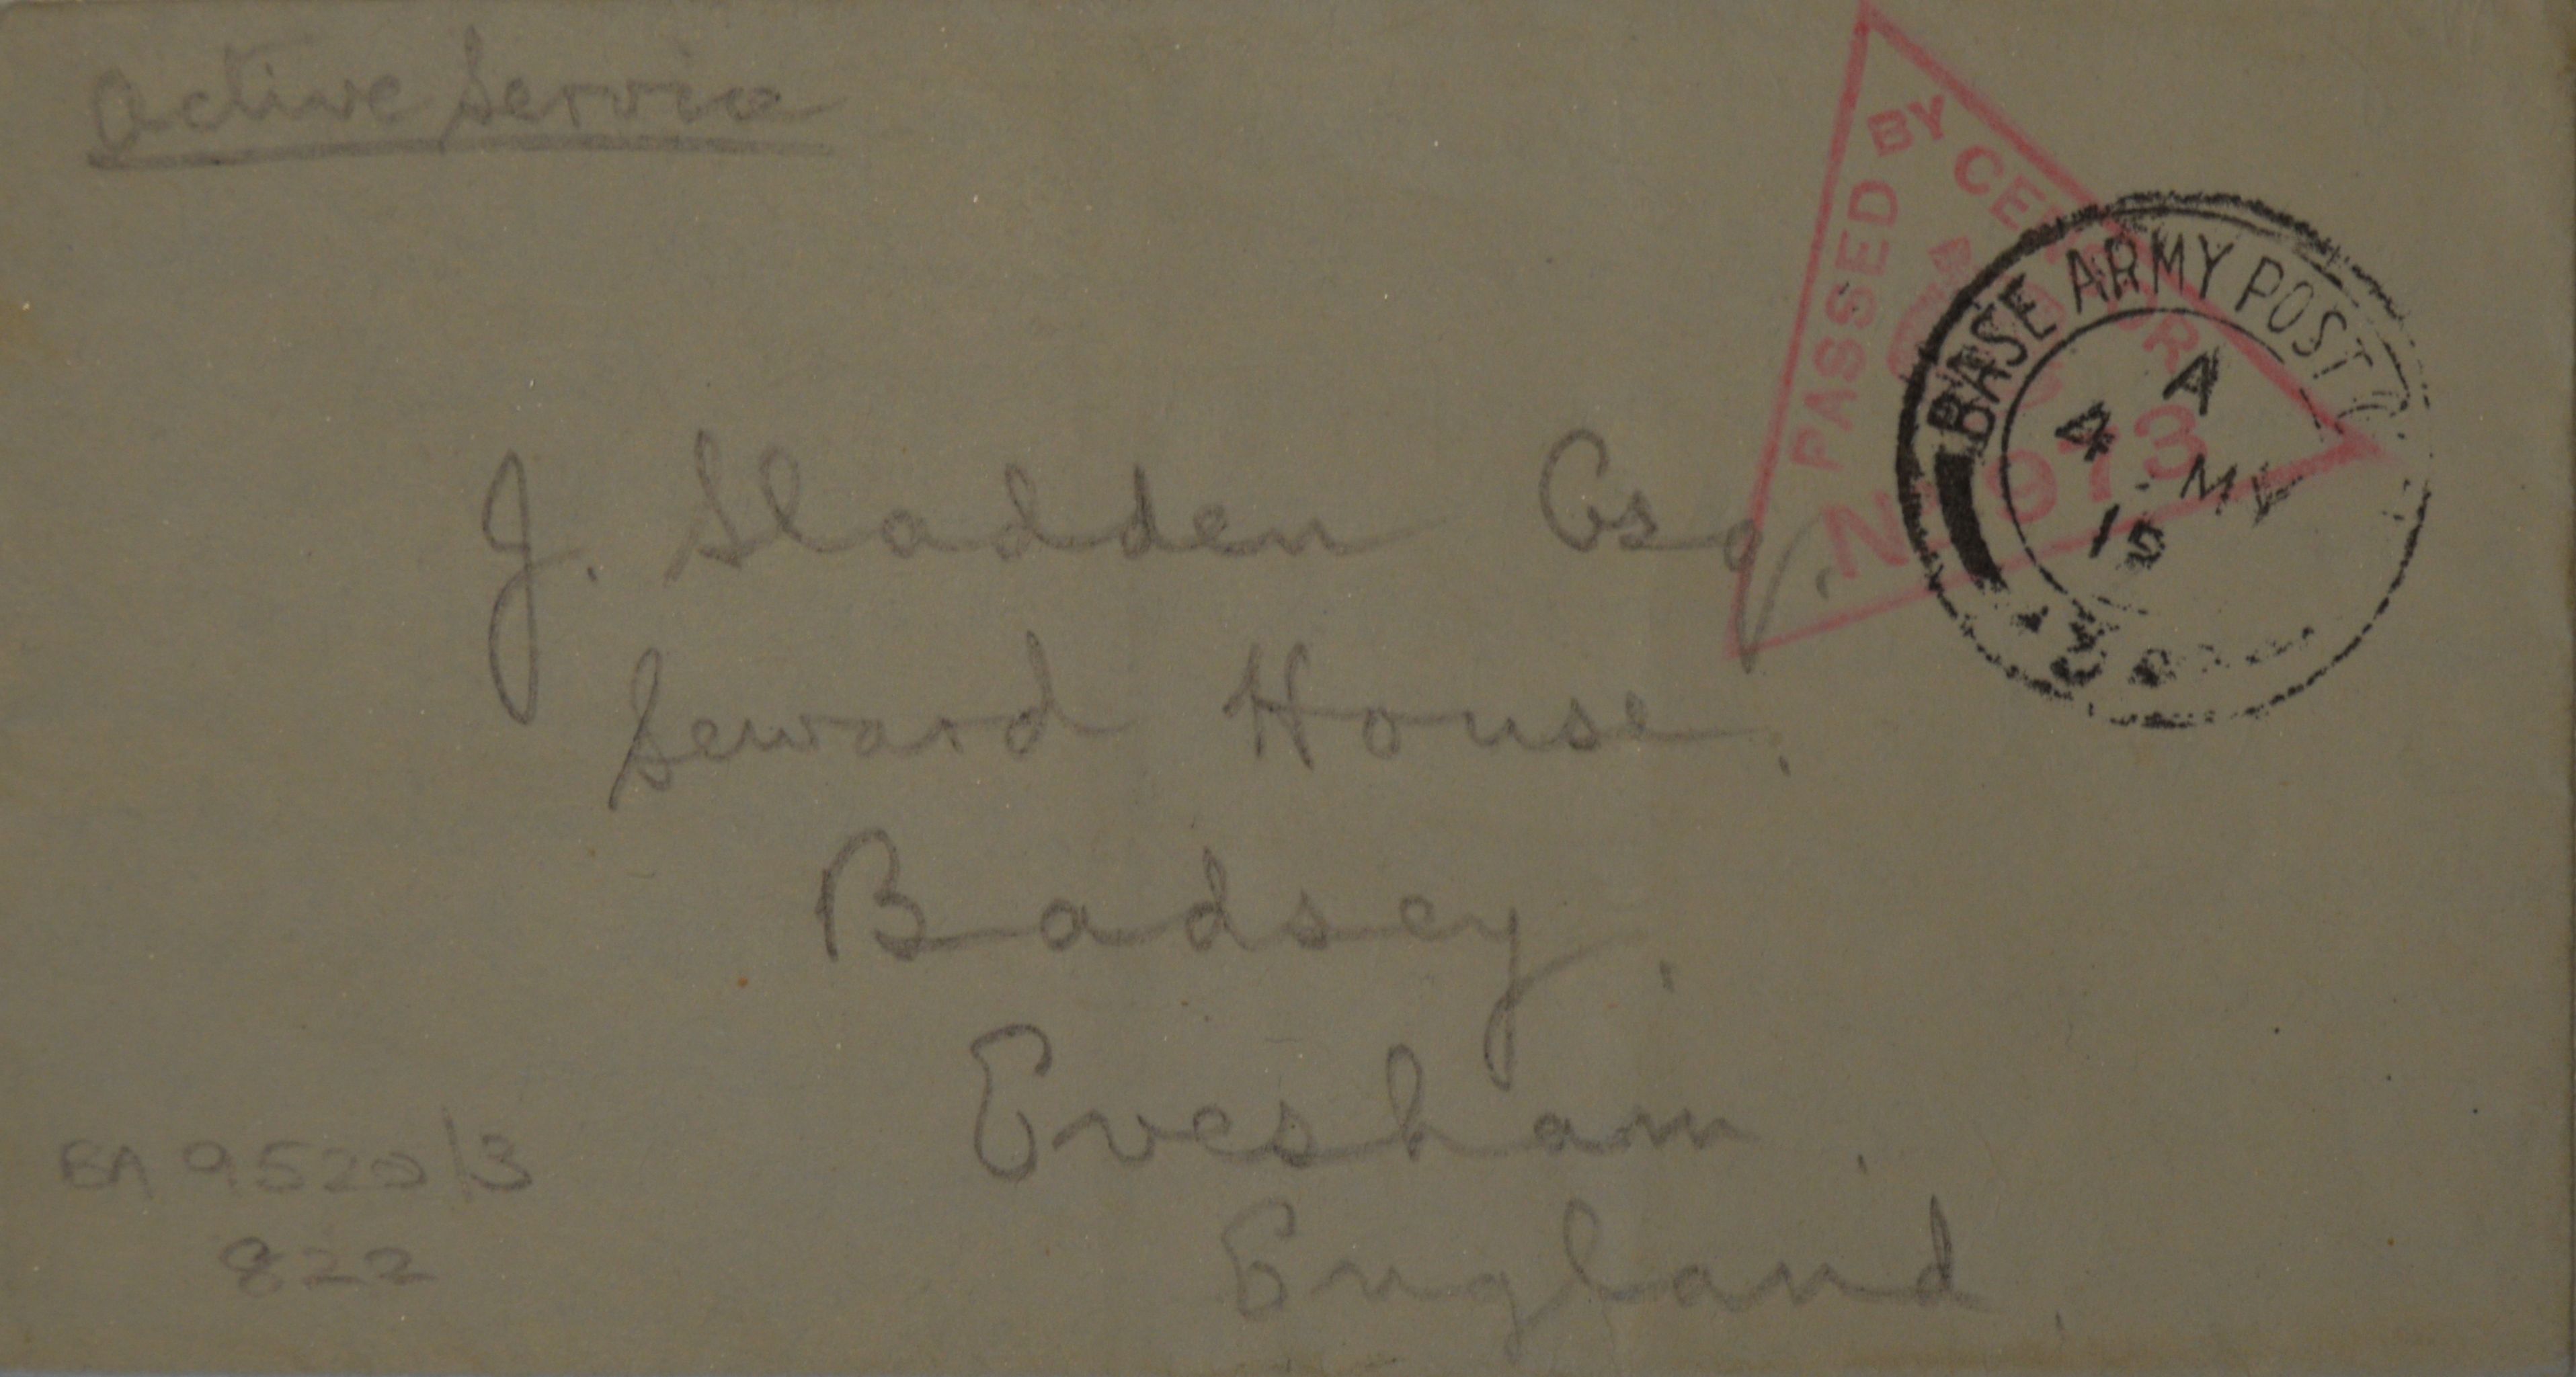 Active Service
PASSED BY CENSOR
No 973
BASE ARMY POST
A
4 MY
15
J. Sladden Esq.
Seward House.
Badsey.
Evesham.
England.
BA 9520/3
822